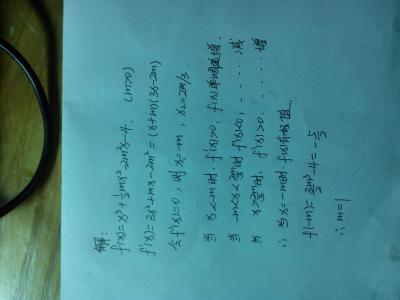 解:
f(x)=x³+½mx²-2m²x-4. (m>0)
f'(x)=3x²+mx-2m²=(x+m)(3x-2m)
令f'(x)=0,则x₁=-m, x₂=2m/3.
当 x<-m时, f'(x)>0, f(x)单调递增.
当 -m<x<2m/3时 f'(x)<0, ······减
当 x>2m/3时, f'(x)>0. ······增
∴ 当x=-m时. f(x)有极值.
f(-m)=3/2m³-4=-5/2
∴ m=1